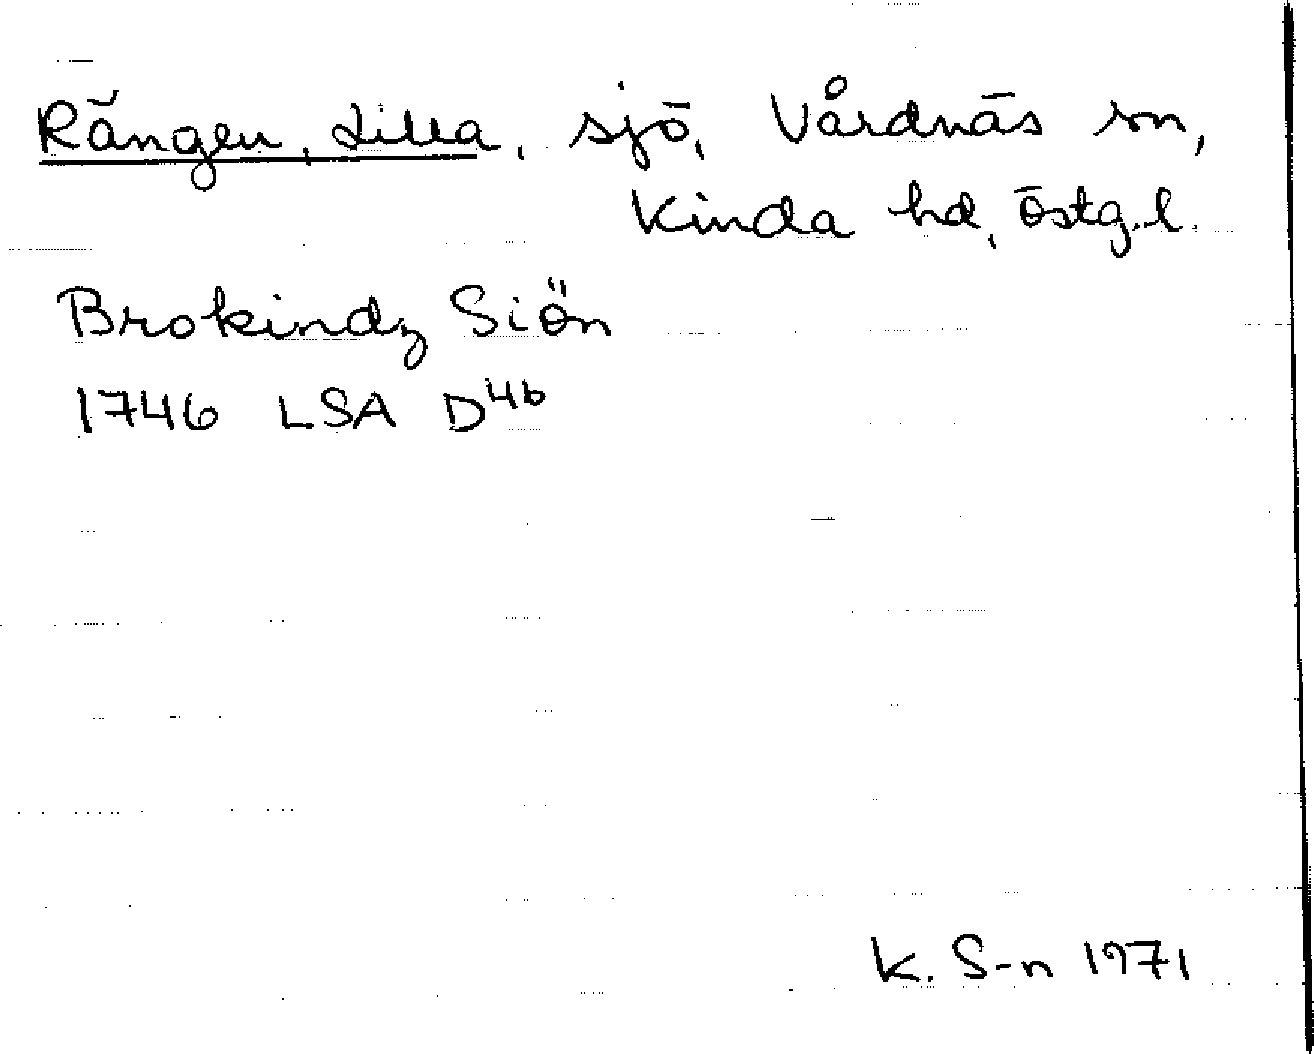 Rängen, Lilla, sjö, Vårdnäs sn,
Kinda hd, Östg.l.
Brokindz Siön
1746 LSA D4b
K. S-n 1971